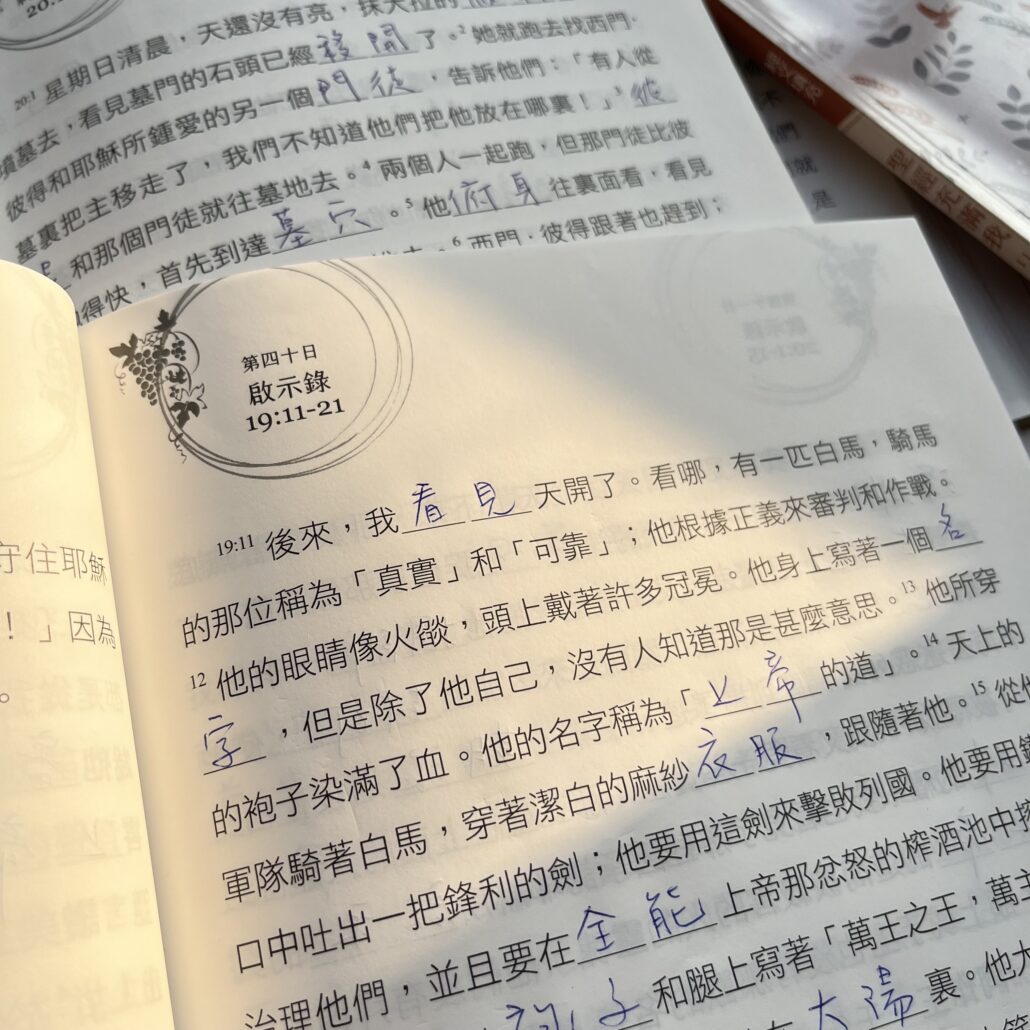 20:1 星期日清晨，天還沒有亮，抹大拉的
墳墓去，看見墓門的石頭已經移開了。2 她就跑去找西門·
彼得和耶穌所鍾愛的另一個門徒，告訴他們：「有人從
墓裏把主移走了，我們不知道他們把他放在哪裏！」3 彼
和那個門徒就往墓地去。4 兩個人一起跑，但那門徒比彼
得快，首先到達墓穴。5 他俯身往裏面看，看見
6 西門·彼得跟著也趕到；
守住耶穌
！」因為
。
第四十日
啟示錄
19:11-21
19:11 後來，我看見天開了。看哪，有一匹白馬，騎馬
的那位稱為「真實」和「可靠」；他根據正義來審判和作戰。
12 他的眼睛像火燄，頭上戴著許多冠冕。他身上寫著一個名
字，但是除了他自己，沒有人知道那是甚麼意思。13 他所穿
的袍子染滿了血。他的名字稱為「上帝的道」。14 天上的
軍隊騎著白馬，穿著潔白的麻紗衣服，跟隨著他。15 從他
口中吐出一把鋒利的劍；他要用這劍來擊敗列國。他要用鐵
治理他們，並且要在全能上帝那忿怒的榨酒池中
袍子和腿上寫著「萬王之王，萬主
太陽裏。他大